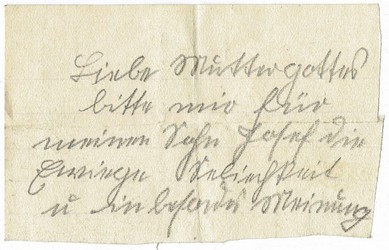 Liebe Muttergottes
bitte mir für
meinen Sohn Josef die
Ewiege Seliechkeit
u in besondes Meinung